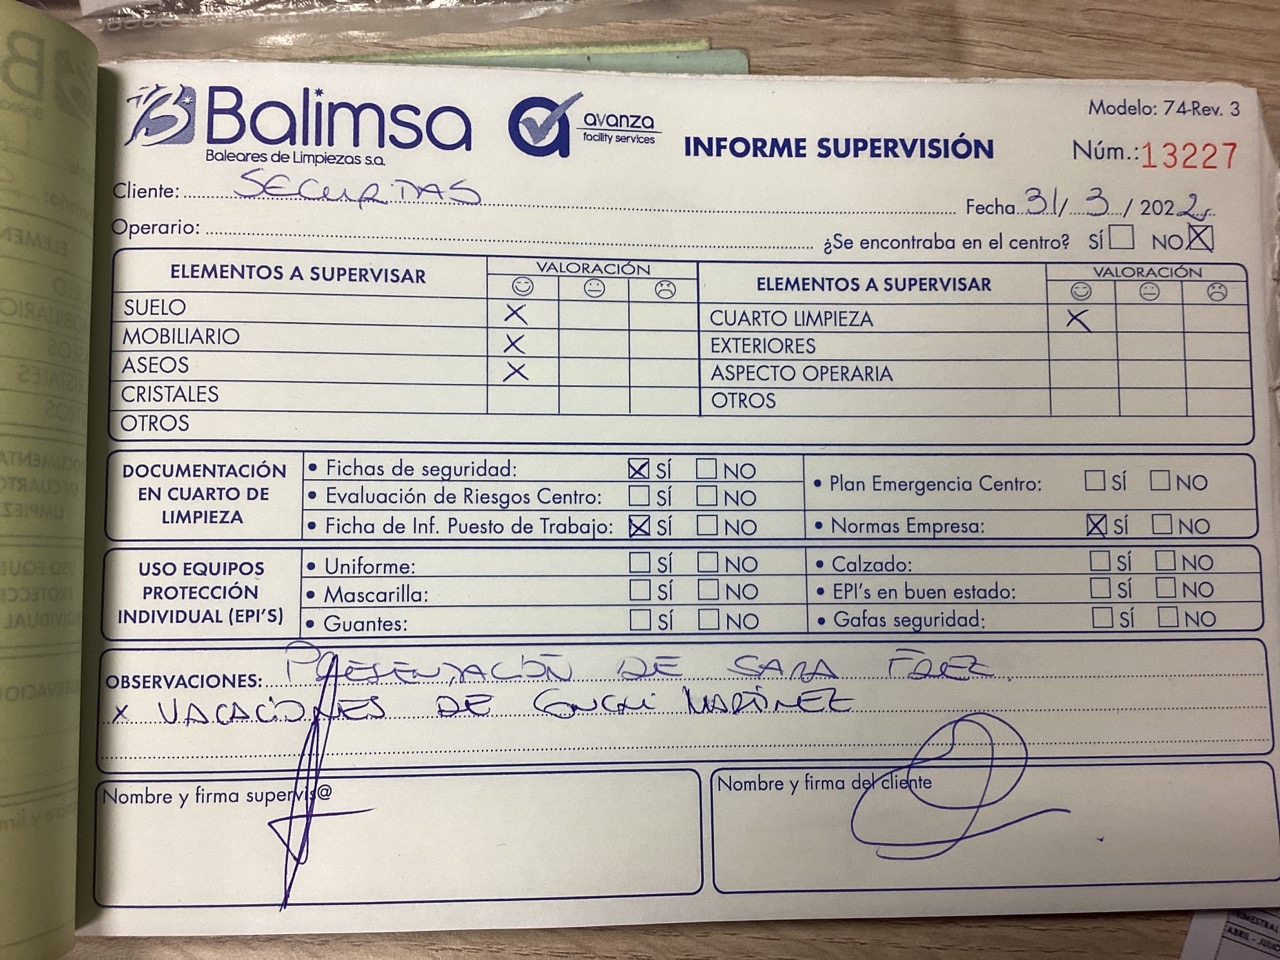 Balimsa
Baleares de Limpiezas s.a.
avanza
facility services
INFORME SUPERVISIÓN
Modelo: 74-Rev. 3
Núm.: 13227
Cliente: SECURITAS
Fecha 31/ 3 / 2022
Operario:
¿Se encontraba en el centro? SÍ NO X
ELEMENTOS A SUPERVISAR VALORACIÓN
SUELO X
MOBILIARIO X
ASEOS X
CRISTALES
OTROS
ELEMENTOS A SUPERVISAR VALORACIÓN
CUARTO LIMPIEZA X
EXTERIORES
ASPECTO OPERARIA
OTROS
DOCUMENTACIÓN
EN CUARTO DE
LIMPIEZA
• Fichas de seguridad: X SÍ NO
• Evaluación de Riesgos Centro: SÍ NO
• Ficha de Inf. Puesto de Trabajo: X SÍ NO
• Plan Emergencia Centro: SÍ NO
• Normas Empresa: X SÍ NO
USO EQUIPOS
PROTECCIÓN
INDIVIDUAL (EPI'S)
• Uniforme: SÍ NO
• Mascarilla: SÍ NO
• Guantes: SÍ NO
• Calzado: SÍ NO
• EPI's en buen estado: SÍ NO
• Gafas seguridad: SÍ NO
OBSERVACIONES: PRESENTACIÓN DE SARA FDEZ.
X VACACIONES DE CONCHI MARTÍNEZ
Nombre y firma supervis@
Nombre y firma del cliente
ABRIL - JULIO